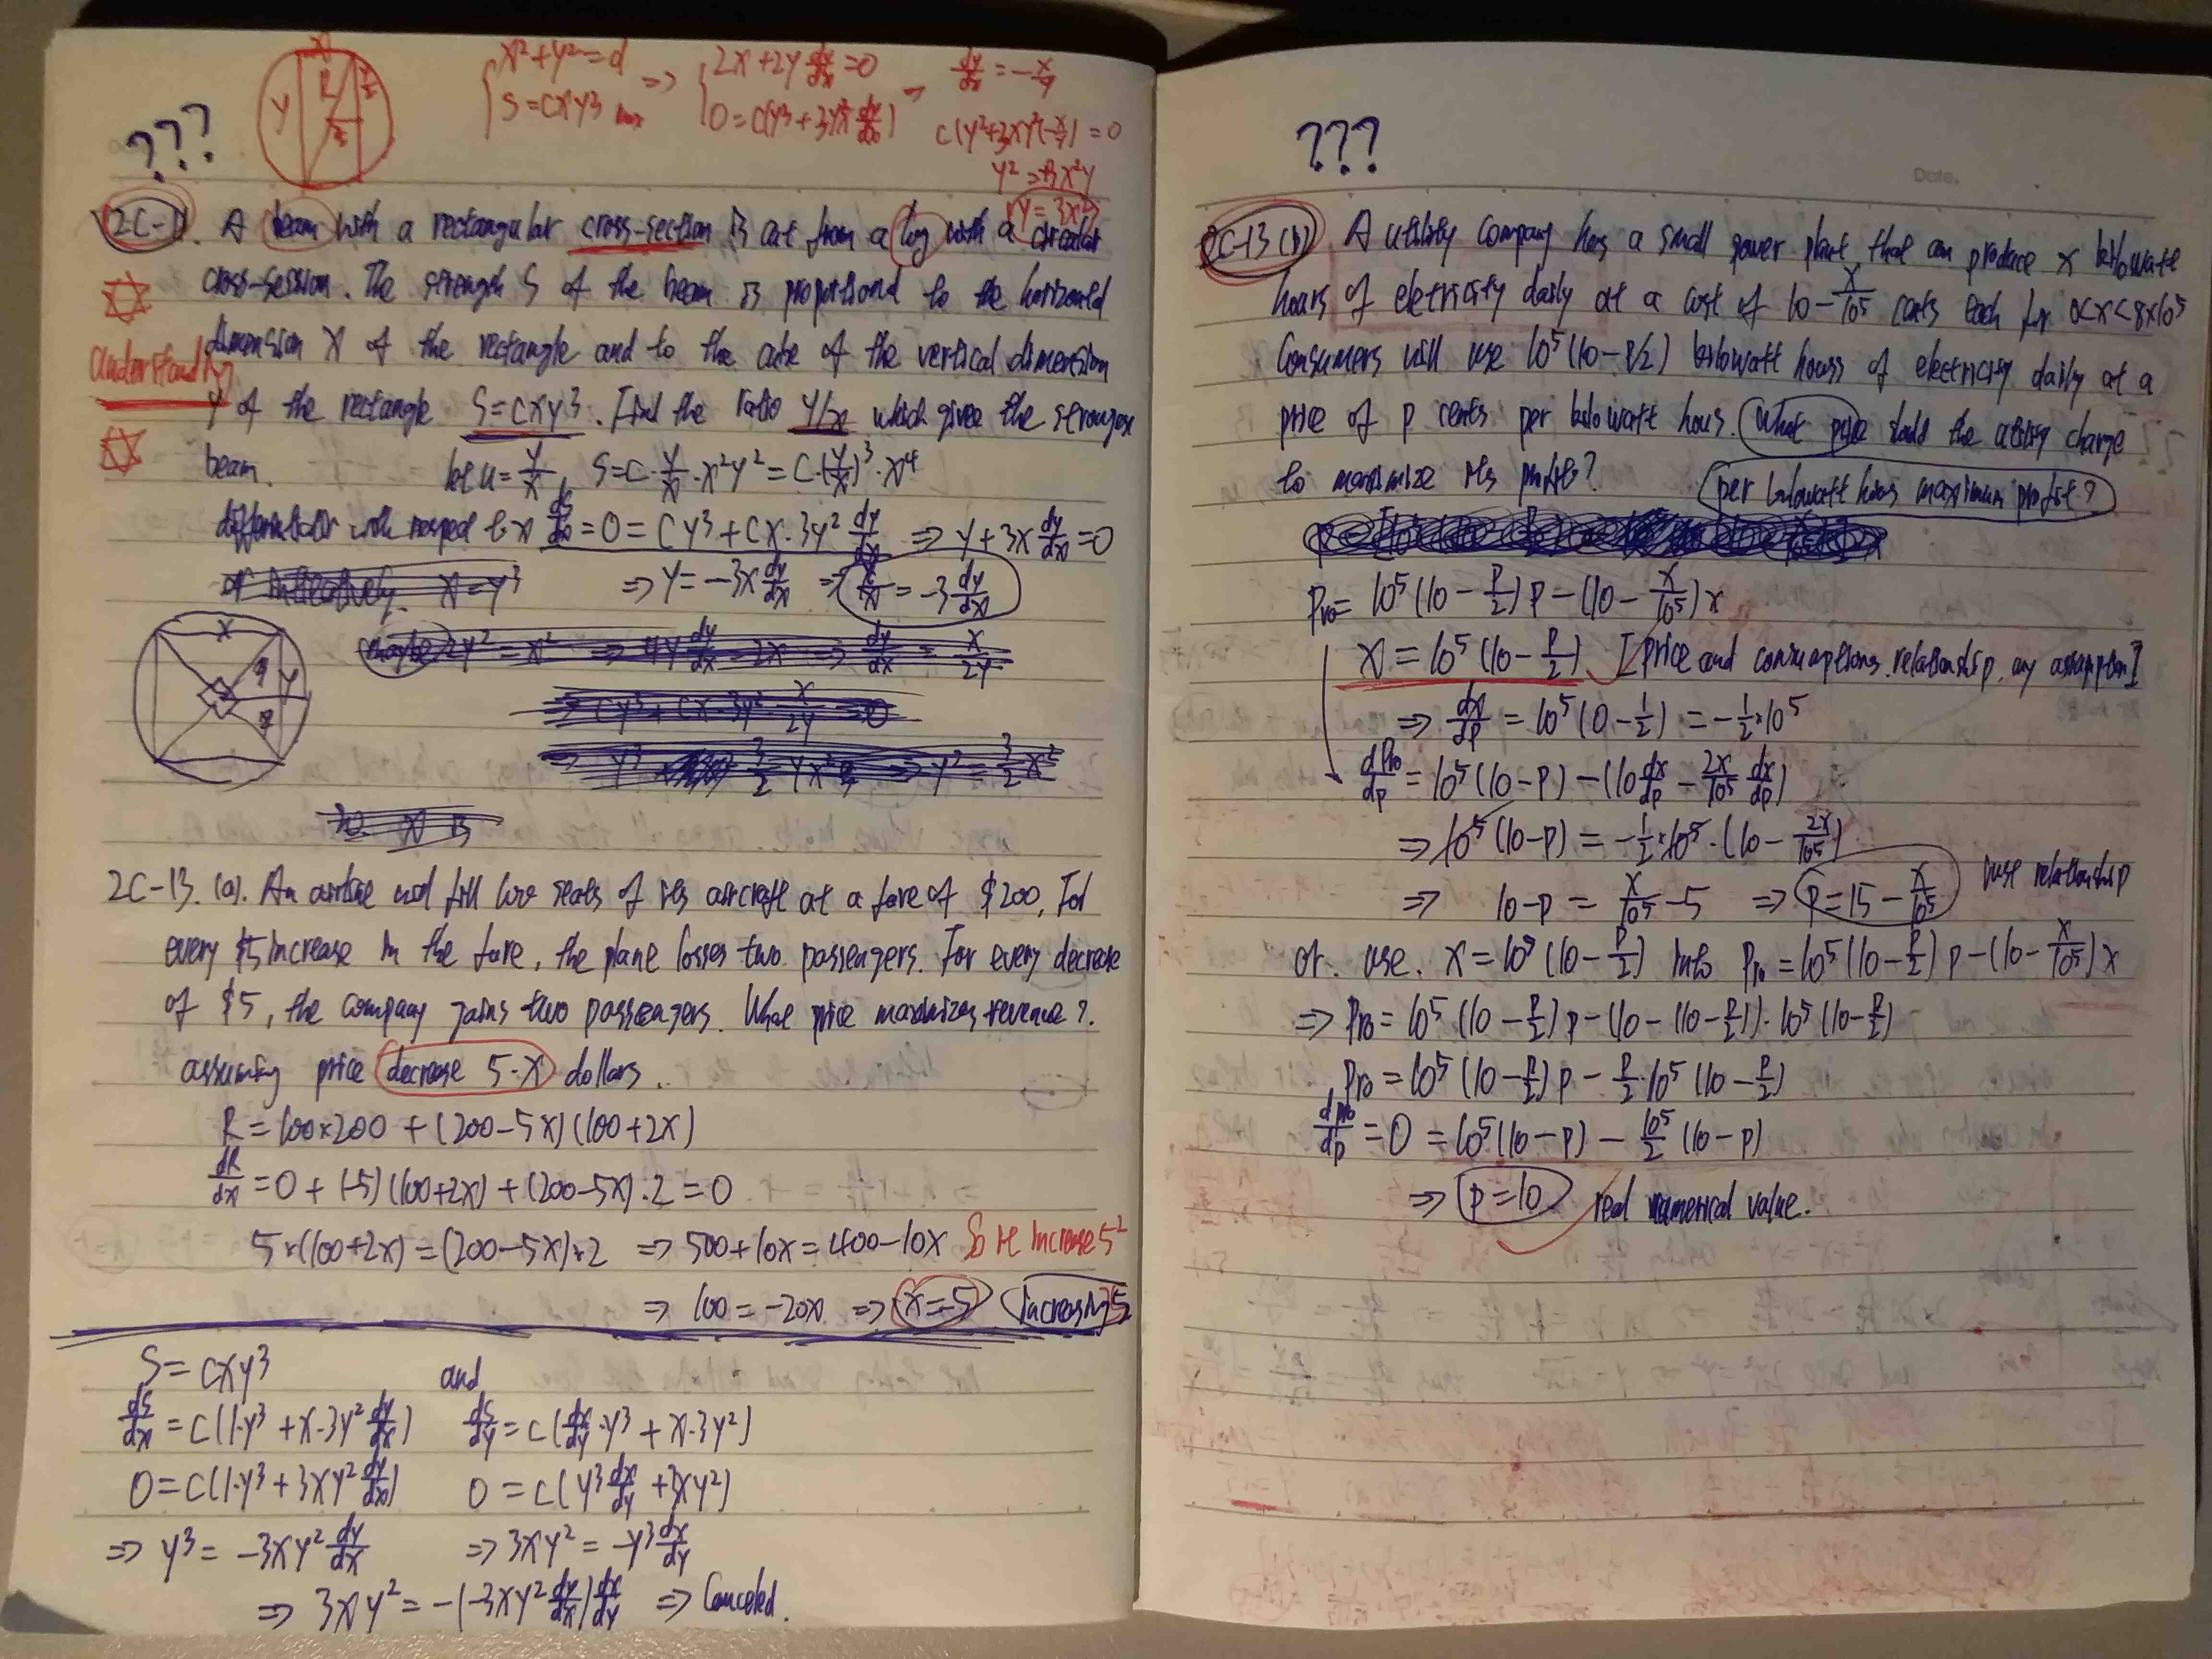 x² + y² = d ⇒ 2x + 2y dy/dx = 0 ⇒ dy/dx = -x/y
S = cxy³ max 0 = c(y³ + 3y²x dy/dx) c(y³+3xy²(-x/y)) = 0
???
x
y
R
2C-11. A beam with a rectangular cross-section is cut from a log with a circular
cross-session. The strength S of the beam is proportional to the horizontal
dimension x of the rectangle and to the cube of the vertical dimension
understanding
y of the rectangle S=cxy³. Find the ratio y/x which gives the stronges
beam. let u = y/x, S = C·y/x·x²y² = C·(y/x)³·x⁴
with respect to x dS/dx = 0 = Cy³ + Cx·3y² dy/dx ⇒ y+3x dy/dx = 0
x = y³ ⇒ y = -3x dy/dx ⇒ y/x = -3 dy/dx
maybe 2y² = x² ⇒ 4y dy/dx = 2x ⇒ dy/dx = x/2y
⇒ cy³ + cx·3y² x/2y = 0
x
y
2C-13. (a). An airline will fill 100 seats of its aircraft at a fare of $200. For
every $5 increase in the fare, the plane losses two passengers. For every decrease
of $5, the company gains two passengers. What price maximizes revenue?
assuming price decrease 5·x dollars.
R = 100×200 + (200-5x)(100+2x)
dR/dx = 0 + (-5)(100+2x) + (200-5x)·2 = 0
5×(100+2x) = (200-5x)×2 ⇒ 500+10x = 400-10x So it increase 5²
⇒ 100 = -20x ⇒ x=-5 increasing 5²
S = cxy³ and
dS/dx = c(1·y³ + x·3y² dy/dx) dS/dy = c(dx/dy·y³ + x·3y²)
0 = c(1·y³ + 3xy² dy/dx) 0 = c(y³ dx/dy + 3xy²)
⇒ y³ = -3xy² dy/dx ⇒ 3xy² = -y³ dx/dy
⇒ 3xy² = -(-3xy² dy/dx) dx/dy ⇒ Canceled.
Date.
???
2C-13 (b) A utility company has a small power plant that can produce x kilowatte
hours of eletricity daily at a cost of 10 - x/10⁵ cents each for 0<x<8×10⁵
Consumers will use 10⁵(10-p/2) kilowatt hours of electricity daily at a
price of p cents per kilowatt hours. What price should the utility charge
to maximize its profits? per kilowatt hours maximum profit?
Pro = 10⁵(10 - p/2)p - (10 - x/10⁵)x
x = 10⁵(10 - p/2) [price and consumptions relationship, any assumption]
⇒ dx/dp = 10⁵(0 - 1/2) = -1/2×10⁵
dPro/dp = 10⁵(10-p) - (10 dx/dp - 2x/10⁵ dx/dp)
⇒ 10⁵(10-p) = -1/2×10⁵·(10 - 2x/10⁵)
⇒ 10-p = x/10⁵ - 5 ⇒ p = 15 - x/10⁵ just relationship
or. use. x = 10⁵(10 - p/2) into Pro = 10⁵(10 - p/2)p - (10 - x/10⁵)x
⇒ Pro = 10⁵(10 - p/2)p - (10 - (10 - p/2))·10⁵(10 - p/2)
Pro = 10⁵(10 - p/2)p - p/2·10⁵(10 - p/2)
dPro/dp = 0 = 10⁵(10-p) - 10⁵/2 (10-p)
⇒ p=10 real numerical value.